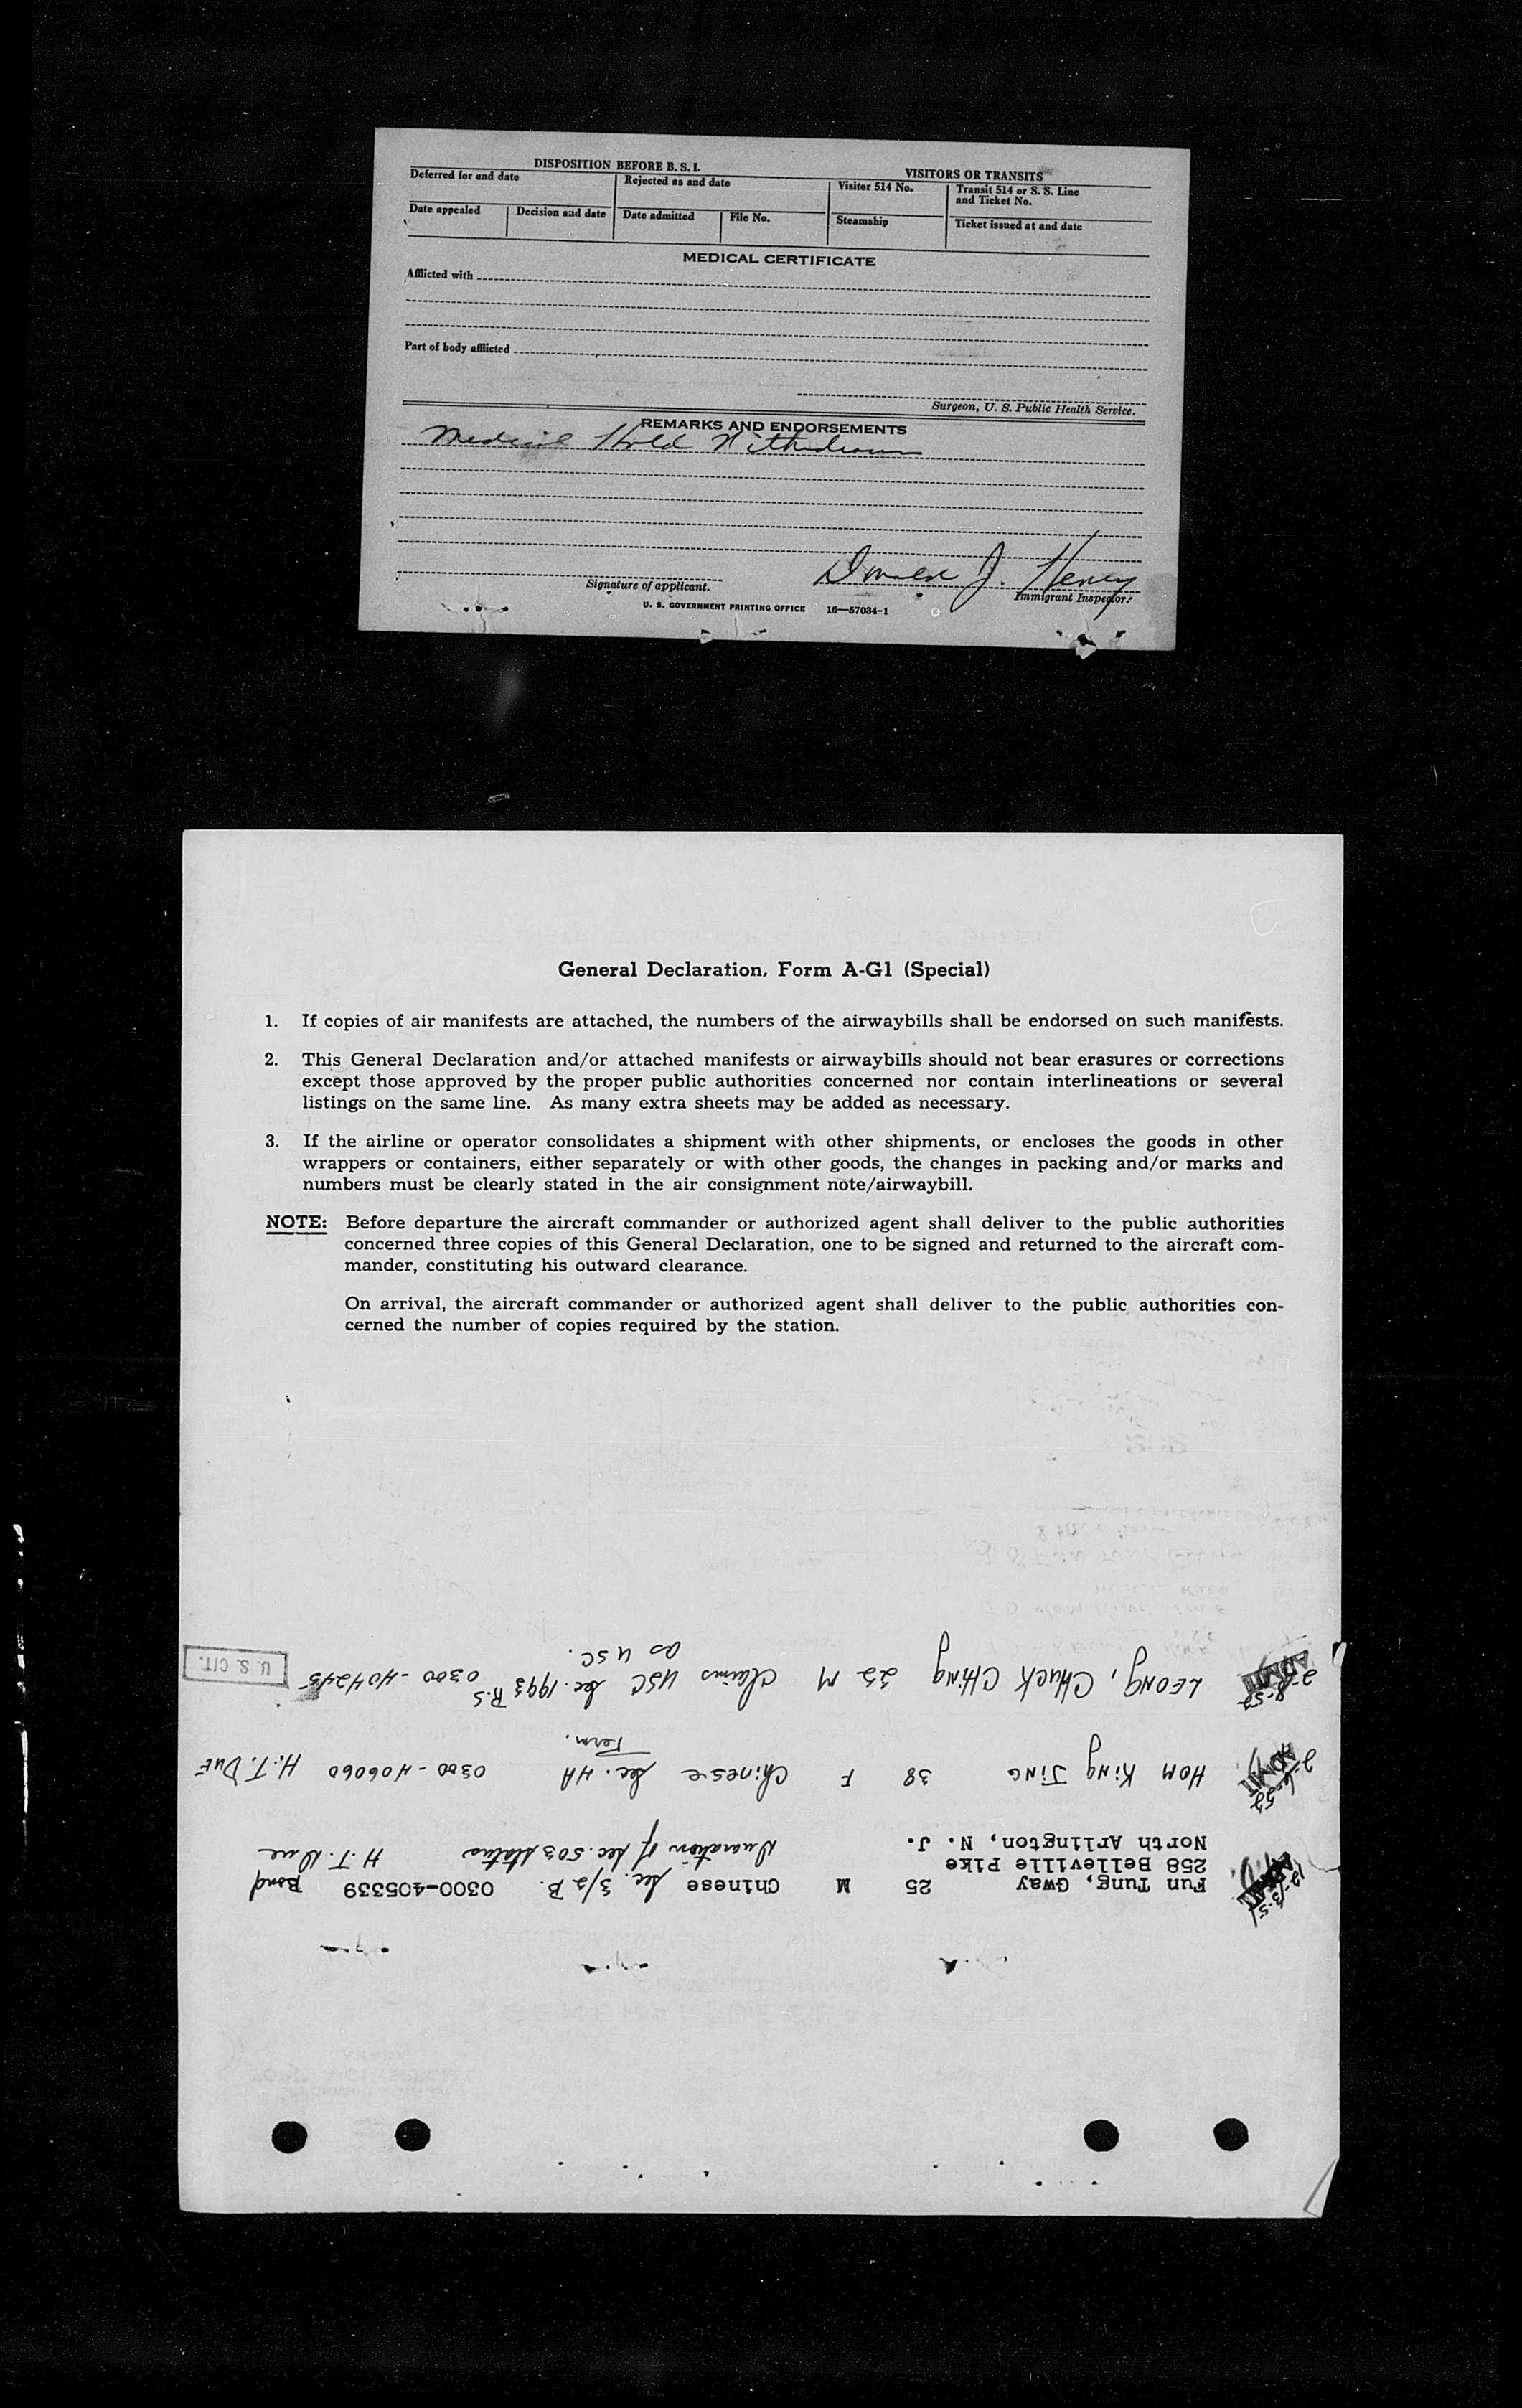 DISPOSITION BEFORE B. S. I.
VISITORS OR TRANSITS
Deferred for and date
Rejected as and date
Visitor 514 No.
Transit 514 or S. S. Line and Ticket No.
Date appealed
Decision and date
Date admitted
File No.
Steamship
Ticket issued at and date
MEDICAL CERTIFICATE
Afflicted with
Part of body afflicted
Surgeon, U. S. Public Health Service.
REMARKS AND ENDORSEMENTS
Medical Hold Withdrawn
Donald J. Henry
Signature of applicant.
Immigrant Inspector.
U. S. GOVERNMENT PRINTING OFFICE 16—57034-1
General Declaration, Form A-G1 (Special)
1. If copies of air manifests are attached, the numbers of the airwaybills shall be endorsed on such manifests.
2. This General Declaration and/or attached manifests or airwaybills should not bear erasures or corrections
except those approved by the proper public authorities concerned nor contain interlineations or several
listings on the same line. As many extra sheets may be added as necessary.
3. If the airline or operator consolidates a shipment with other shipments, or encloses the goods in other
wrappers or containers, either separately or with other goods, the changes in packing and/or marks and
numbers must be clearly stated in the air consignment note/airwaybill.
NOTE: Before departure the aircraft commander or authorized agent shall deliver to the public authorities
concerned three copies of this General Declaration, one to be signed and returned to the aircraft com-
mander, constituting his outward clearance.
On arrival, the aircraft commander or authorized agent shall deliver to the public authorities con-
cerned the number of copies required by the station.
12-13-51 ADMIT Fun Tung, Gway 25 M Chinese Sec. 3/2 B. 0300-405339 Bond
258 Belleville Pike Duration of Sec. 503 status H.T. Due
North Arlington, N. J.
2-6-52 ADMIT HOM King Jing 38 F Chinese Sec. 4A 0300-406060 H.T. Due
Perm.
2-8-52 ADMIT LEONG, Chuck Ching 22 M Claims USC Sec. 1993 R.S. 0300-404245 U. S. CIT.
as USC.